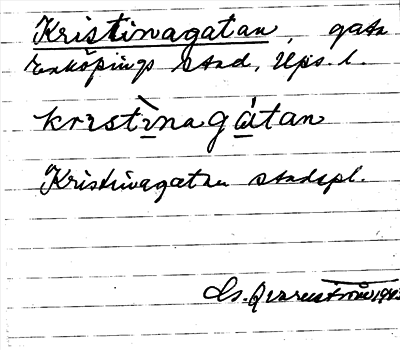 Kristinagatan gata
Enköpings stad, Ups. l.
krıstı̀nagátan
Kristinagatan stadspl.
Cs. Qvarnström